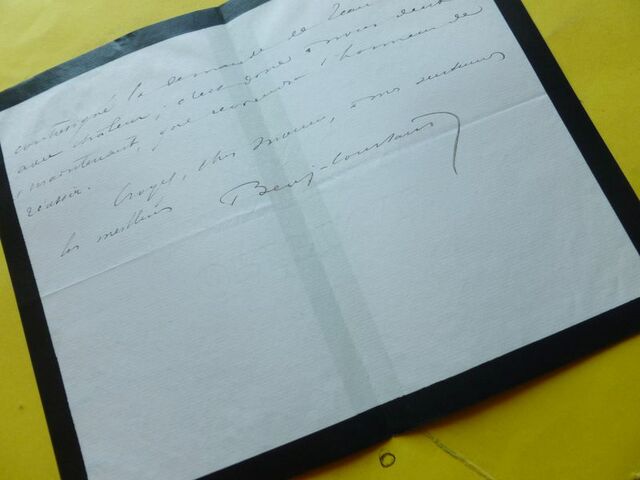 contresigné la demande de Jean
avec chaleur, c'est donc à nous deux
maintenant, que reviendra l'honneur de
réussir.
Croyez, cher Monsieur, à mes sentiments
les meilleurs
Benj-Constant